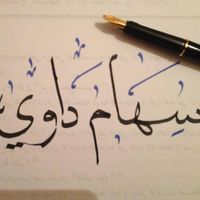 سيهام داوي